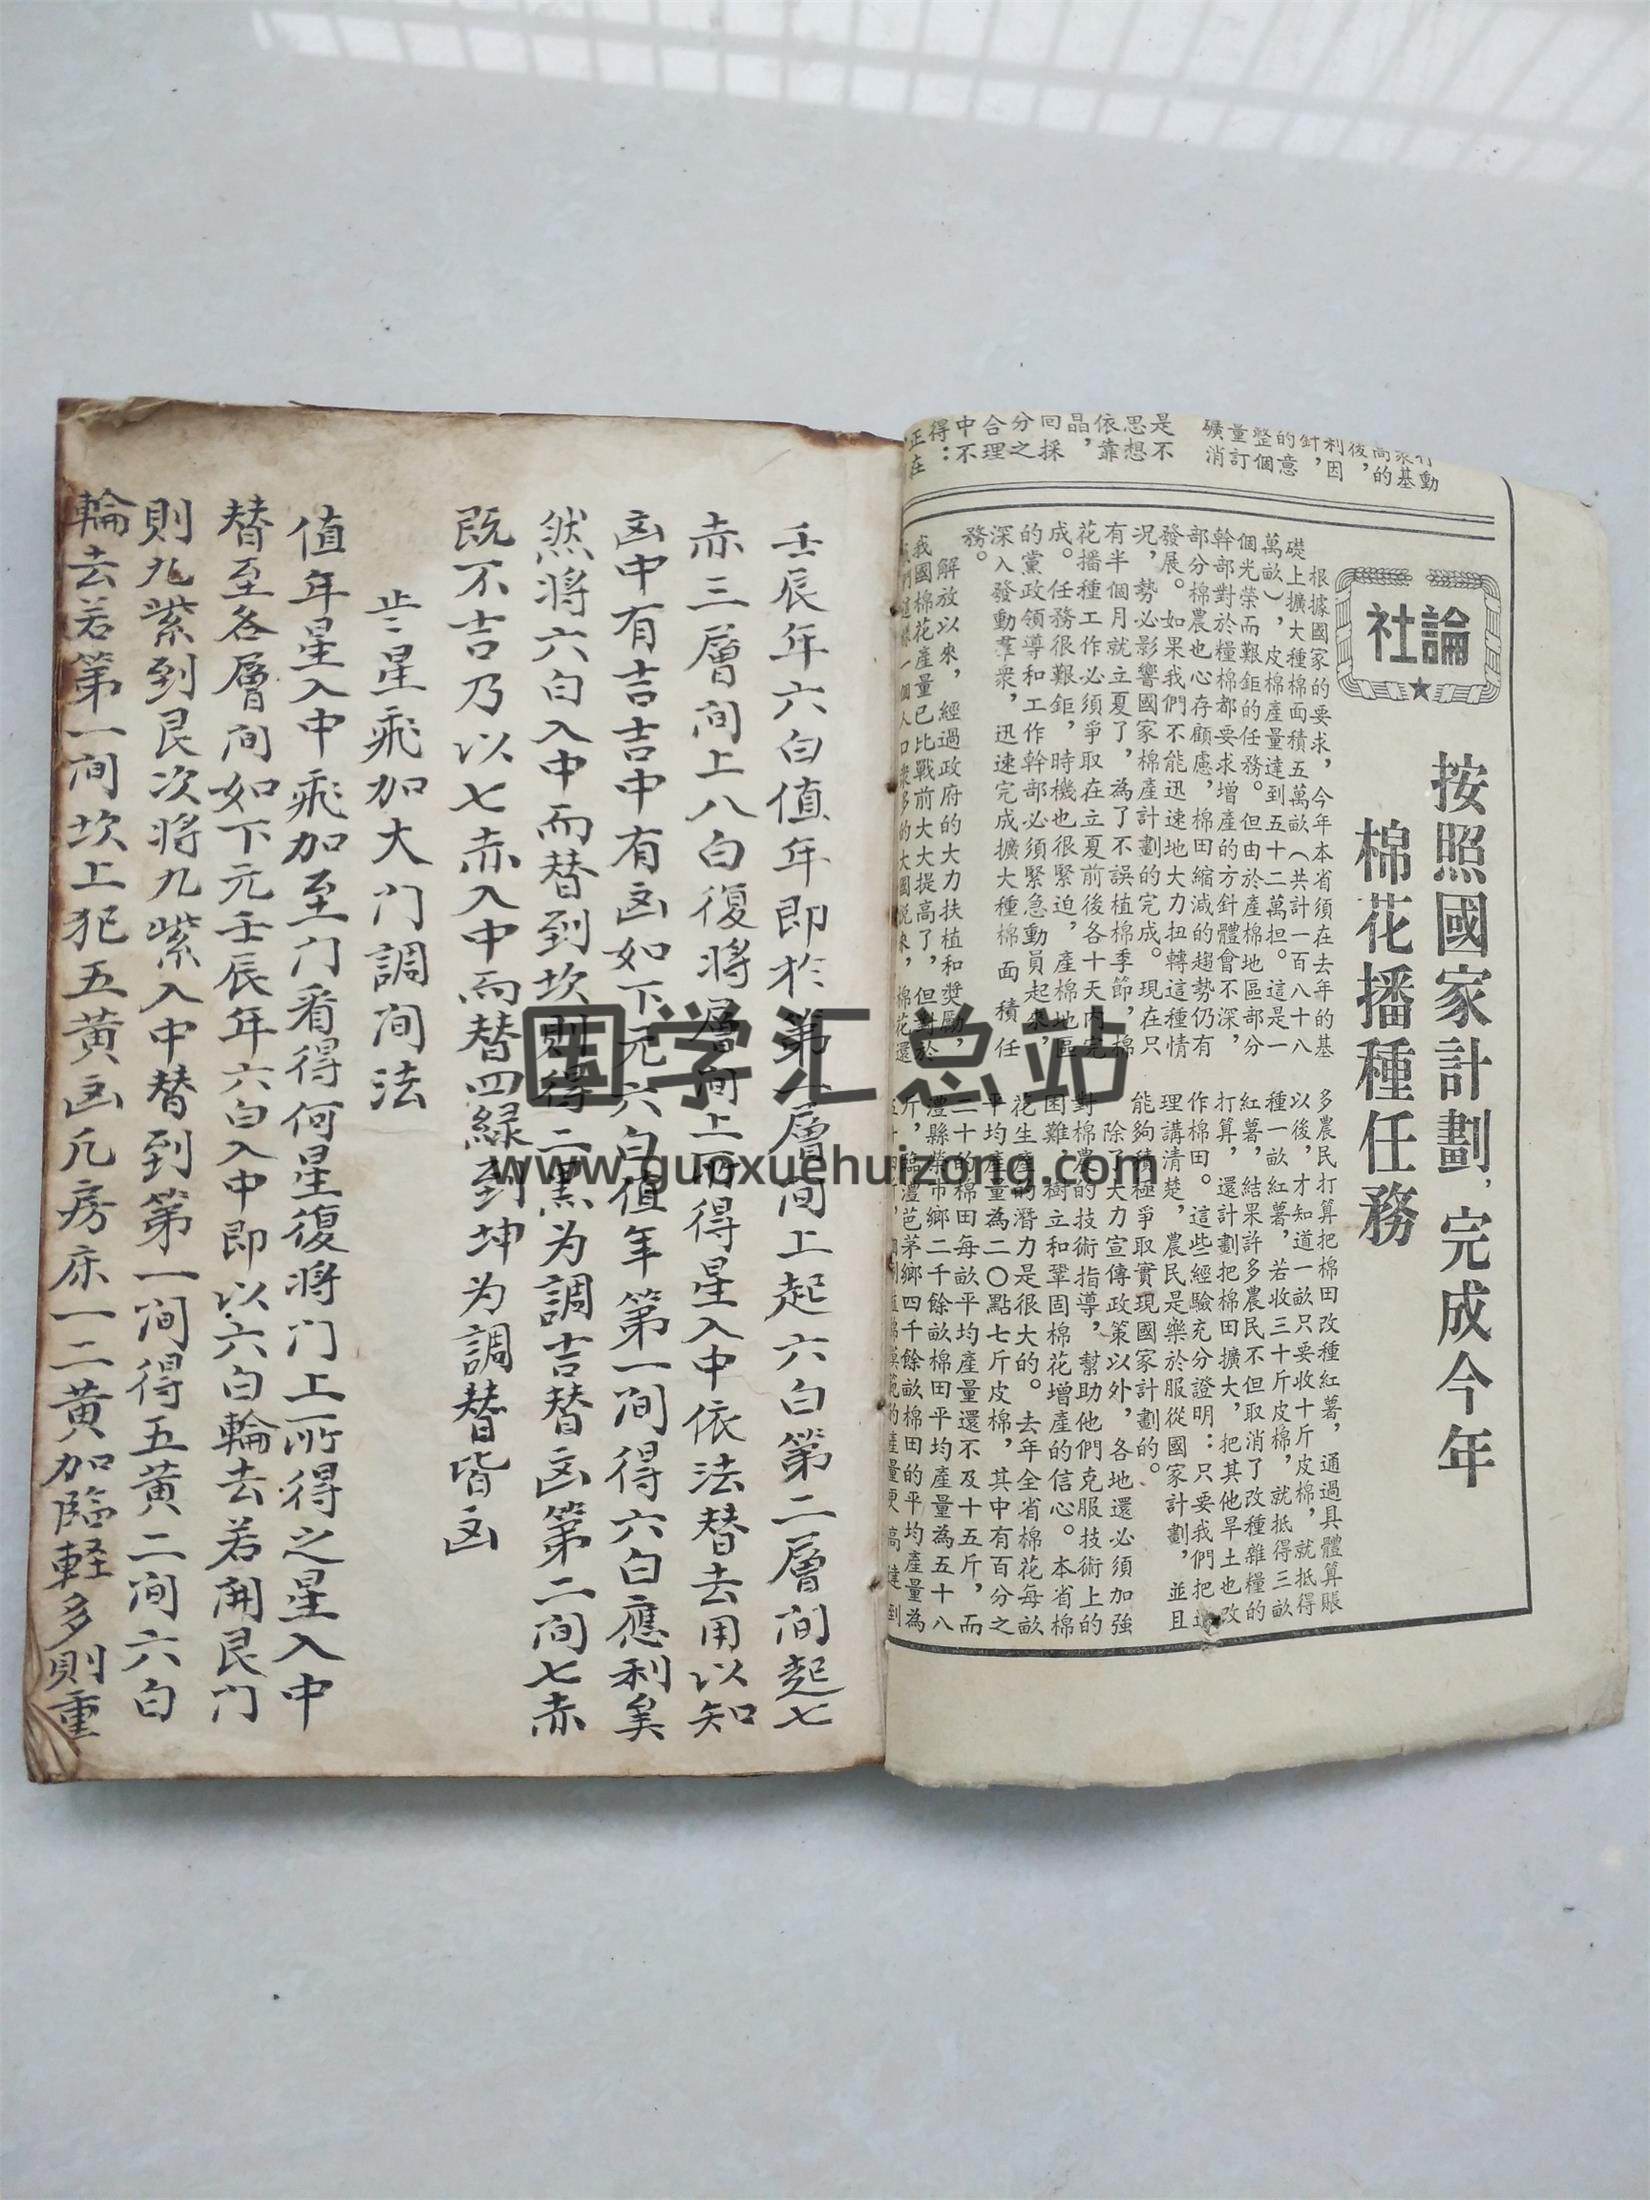 社論
按照國家計劃，完成今年
棉花播種任務
根據國家的要求，今年本省須在去年的基
礎上擴大種棉面積五萬畝（共計一百八十八
萬畝），皮棉產量達到五十二萬担。這是一
個光榮而艱鉅的任務。但由於產棉地區部分
幹部對於糧棉都要求增產的方針體會不深，
部分棉農也心存顧慮，棉田縮減的趨勢仍有
發展。如果我們不能迅速地大力扭轉這種情
况，勢必影響國家棉產計劃的完成。現在只
有半個月就立夏了，為了不誤植棉季節，棉
花播種工作必須爭取在立夏前後各十天內完
成。任務很艱鉅，時機也很緊迫，產棉地區
的黨政領導和工作幹部必須緊急動員起來，
深入發動羣衆，迅速完成擴大種棉面積任
務。
解放以來，經過政府的大力扶植和獎勵，
我國棉花產量已比戰前大大提高了，但對於
多農民打算把棉田改種紅薯，通過具體算賬
以後，才知道一畝只要收十斤皮棉，就抵得
種一畝紅薯，若收三十斤皮棉，就抵得三畝
紅薯，結果許多農民不但取消了改種雜糧的
打算，還計劃把棉田擴大，把其他旱土也改
作棉田。這些經驗充分證明：只要我們把道
理講清楚，農民是樂於服從國家計劃，並且
能夠積極爭取實現國家計劃的。
除了大力宣傳政策以外，各地還必須加強
對棉農的技術指導，幫助他們克服技術上的
困難，樹立和鞏固棉花增產的信心。本省棉
花生產的潛力是很大的。去年全省棉花每畝
平均產量為二〇點七斤皮棉，其中有百分之
二十的棉田每畝平均產量還不及十五斤，而
澧縣柴市鄉二千餘畝棉田平均產量為五十八
斤，臨澧芭茅鄉四千餘畝棉田的平均產量為
壬辰年六白值年即於第一層间上起六白第二層间起七
赤三層间上八白復將層间上所得星入中依法替去用以知
凶中有吉吉中有凶如下元六白值年第一间得六白應利矣
然將六白入中而替到坎則得二黑为調吉替凶第二间七赤
既不吉乃以七赤入中而替四緑到坤为調替皆凶
星飛加大门調间法
值年星入中飛加至门看得何星復將门上所得之星入中
替至各層间如下元壬辰年六白入中即以六白輪去若開艮门
則九紫到艮次將九紫入中替到第一间得五黄二间六白
輪去若第一间坎上犯五黄凶凡房床一二黄加臨軽多則重
国学汇总站
www.guoxuehuizong.com